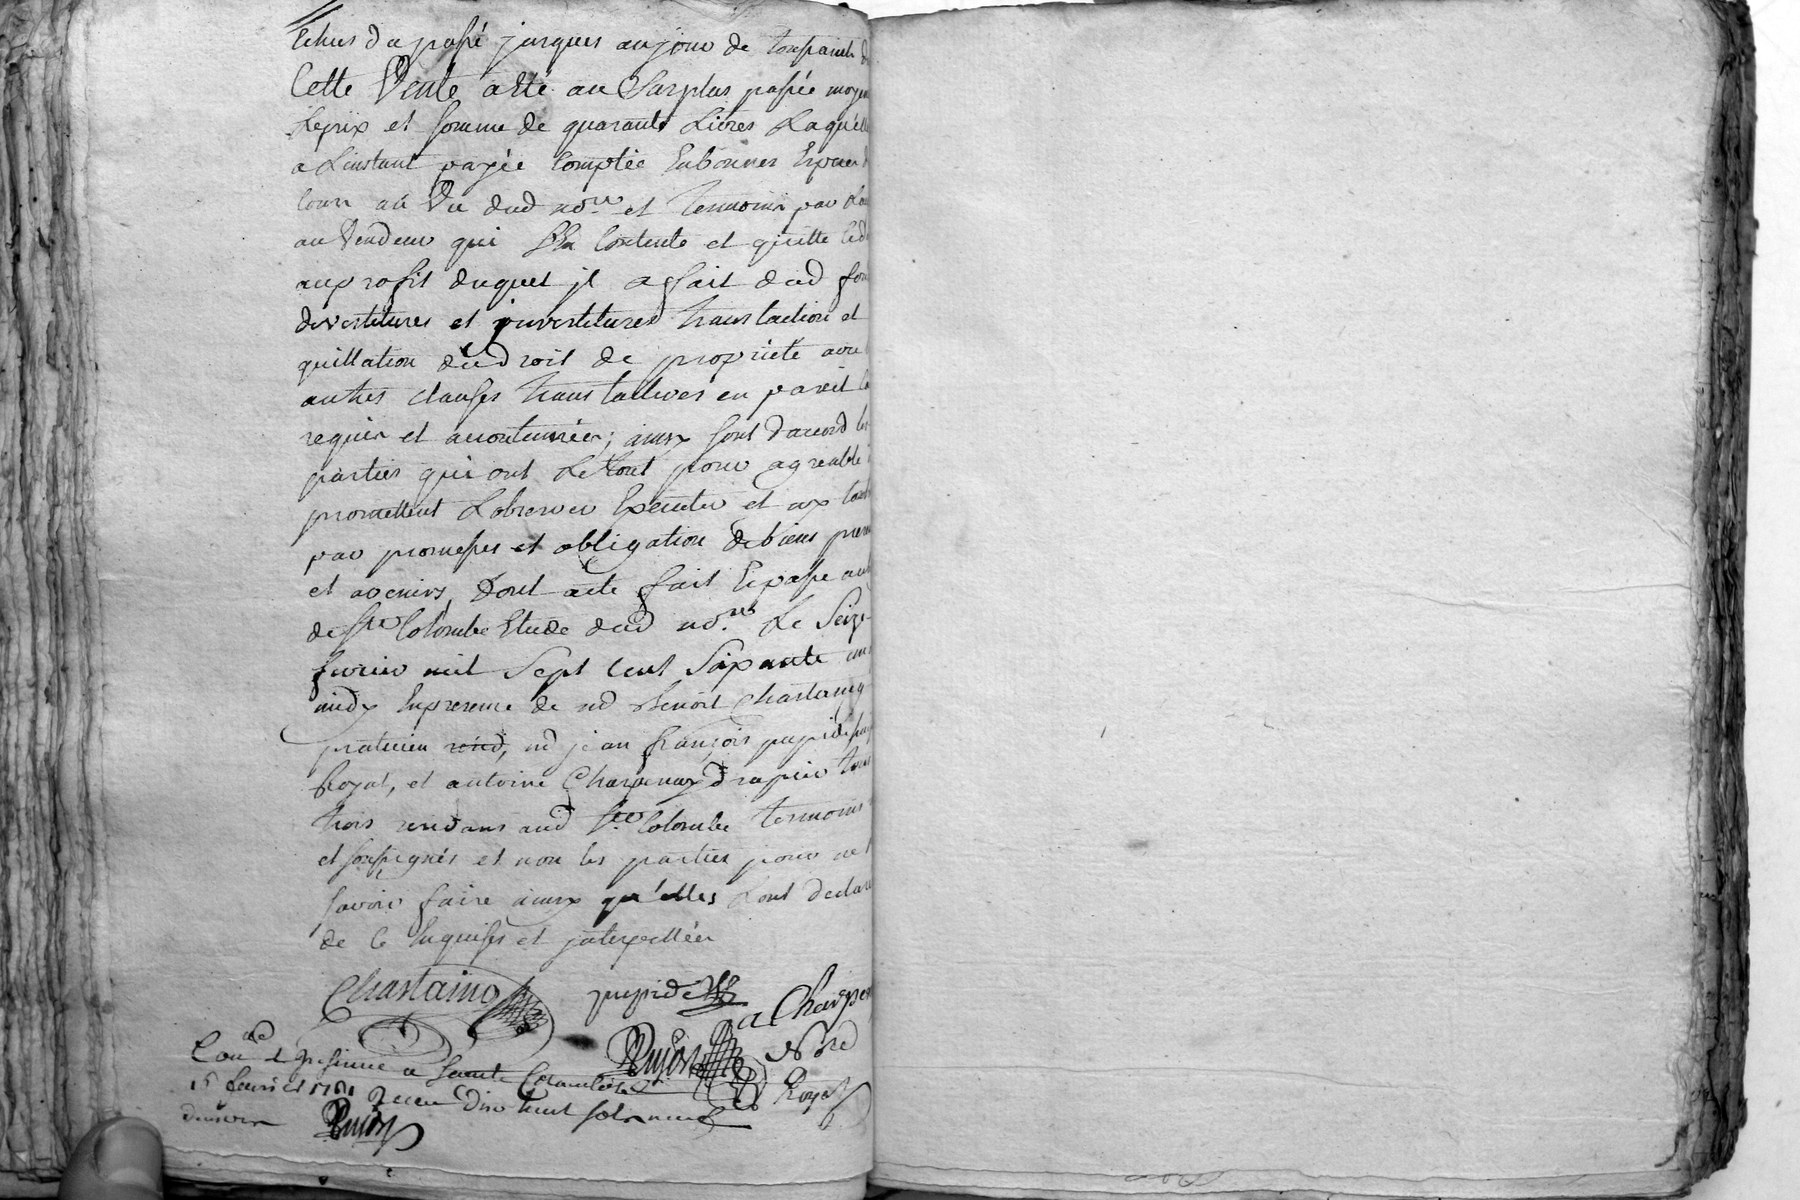 Echus du passé jusques au jour de toussaint d
Cette Vente a été au Surplus passée moyen
Le prix et somme de quarante Livres Laquelle
a L'instant payée Comptée En bonnes Espèces d
Cours au Vu dud no.re et temoins par
au Vendeur qui S'En Contente et quitte Led
au profit duquel jl a fait dud fon
devestitures et jnvestitures translation et
quittation du droit de proprieté avec
autres clauses translatives en pareil Ca
requis et accoutumées; ainsy sont d'accord les
parties qui ont Le tout pour agreable
promettent L'observer Executer et
par promesses et obligation de biens presen
et avenirs, Dont acte fait Et passé au
de S.te Colombe Etude dud no.re Le Seize
fevrier mil Sept Cent Soixante
midy En presence de m.e Benoit Chastaing
praticien m.e jean françois pupide
Royal, et antoine Charpenay drapier tous
trois residans aud S.te Colombe temoins
et soussignés et non les parties pour ne
savoir faire ainsy qu'elles L'ont declaré
de ce Enquises et jnterpellées
Chastaing pupide a Charpe
Dujost No.re Royal
Con.lé a Sainte Colombe Le
16 fevrier 1761 Reçu Dix huit sols
Dujost